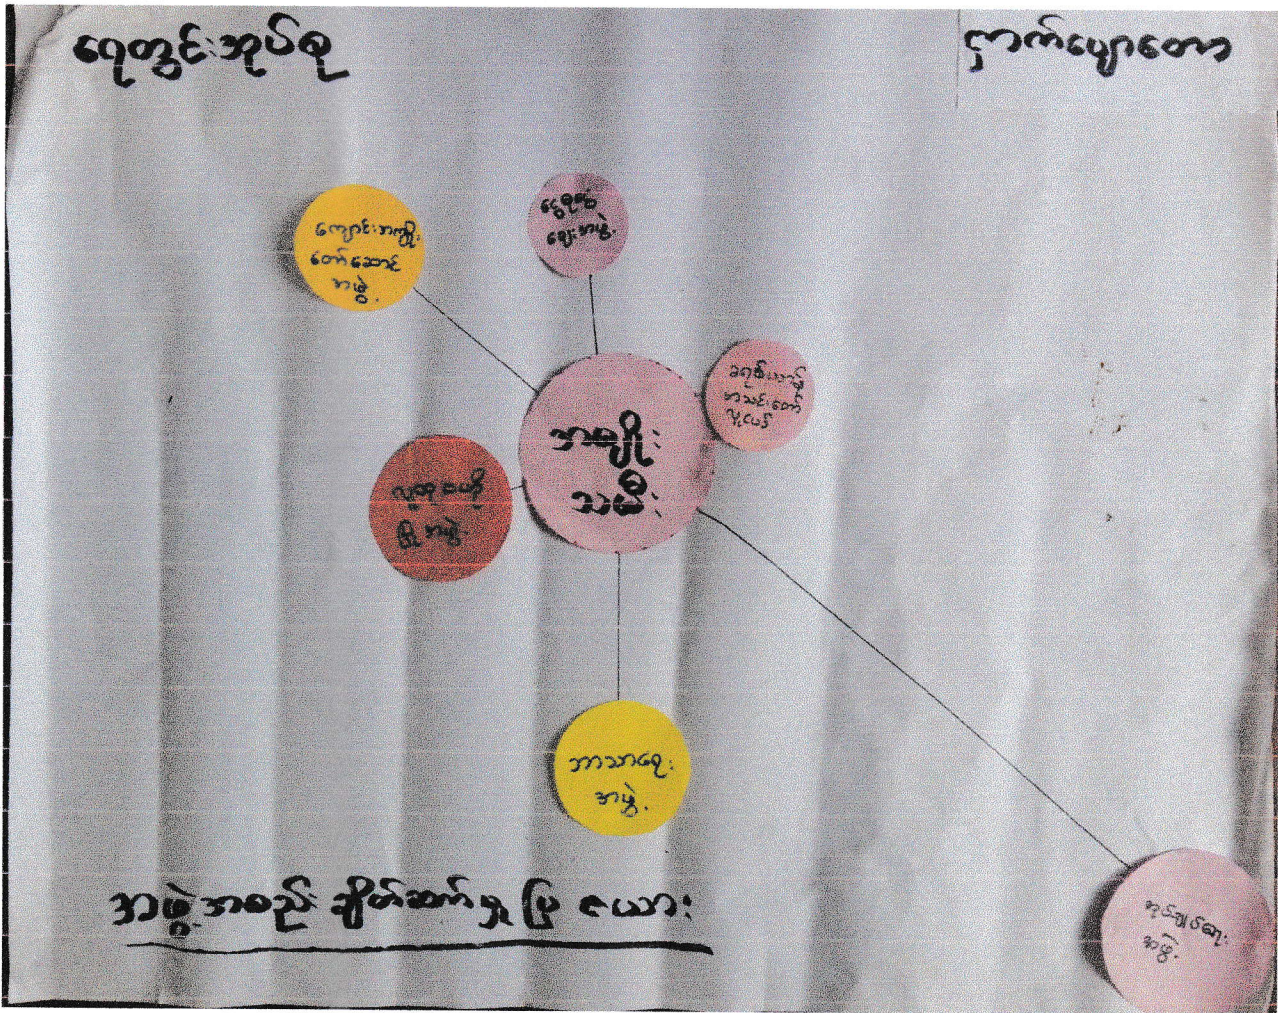 ရေတွင်းအုပ်စု
ငှက်ပျောတော
ကျောင်းအကျိုး
တော်ဆောင်
အဖွဲ့
ငွေစုငွေ
ချေးအဖွဲ့
ခရစ်ယာန်
အသင်းတော်
လူငယ်
အမျိုး
သမီး
လူထုဗဟို
ပြု အဖွဲ့
ဘာသာရေး
အဖွဲ့
အုပ်ချုပ်ရေး
အဖွဲ့
အဖွဲ့အစည်း ချိတ်ဆက်မှု ပြ ဇယား